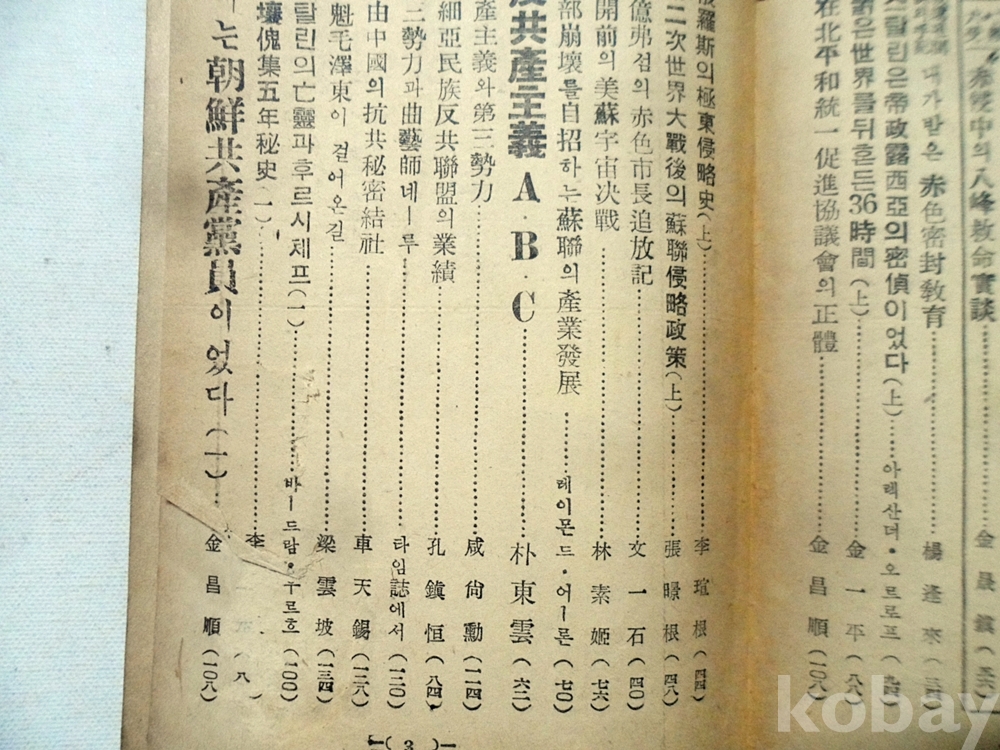 八峰救命實談……金晨鎭
내가받은赤色密封敎育……楊逢來
스탈린은帝政露西亞의密偵이었다(上)……아렉산더·오르로프
世界를뒤흔든36時間(上)……金一平(八八)
在北平和統一促進協議會의正體……金昌順(一〇八)
俄羅斯의極東侵略史(上)……李瑄根(四四)
二次世界大戰後의蘇聯侵略政策(上)……張暻根(四八)
億弗점의赤色市長追放記……文一石(四〇)
開前의美蘇宇宙決戰……林素姬(七六)
部崩壞를自招하는蘇聯의產業發展……레이몬드·어ー론(七〇)
反共產主義A·B·C……朴東雲(六二)
產主義와第三勢力……咸尙勳(一一四)
細亞民族反共聯盟의業績……孔鎭恒(八四)
三勢力과曲藝師네ー루……타임誌에서(一二〇)
由中國의抗共秘密結社……車天錫(一二八)
魁毛澤東이걸어온길……梁雲坡(一三四)
탈린의亡靈과후르시체프(一)……바ー드람·우르흐(一〇〇)
壞傀集五年秘史(一)……李
는朝鮮共產黨員이었다(一)……金昌順(一〇八)
ー( 3 )ー
kobay